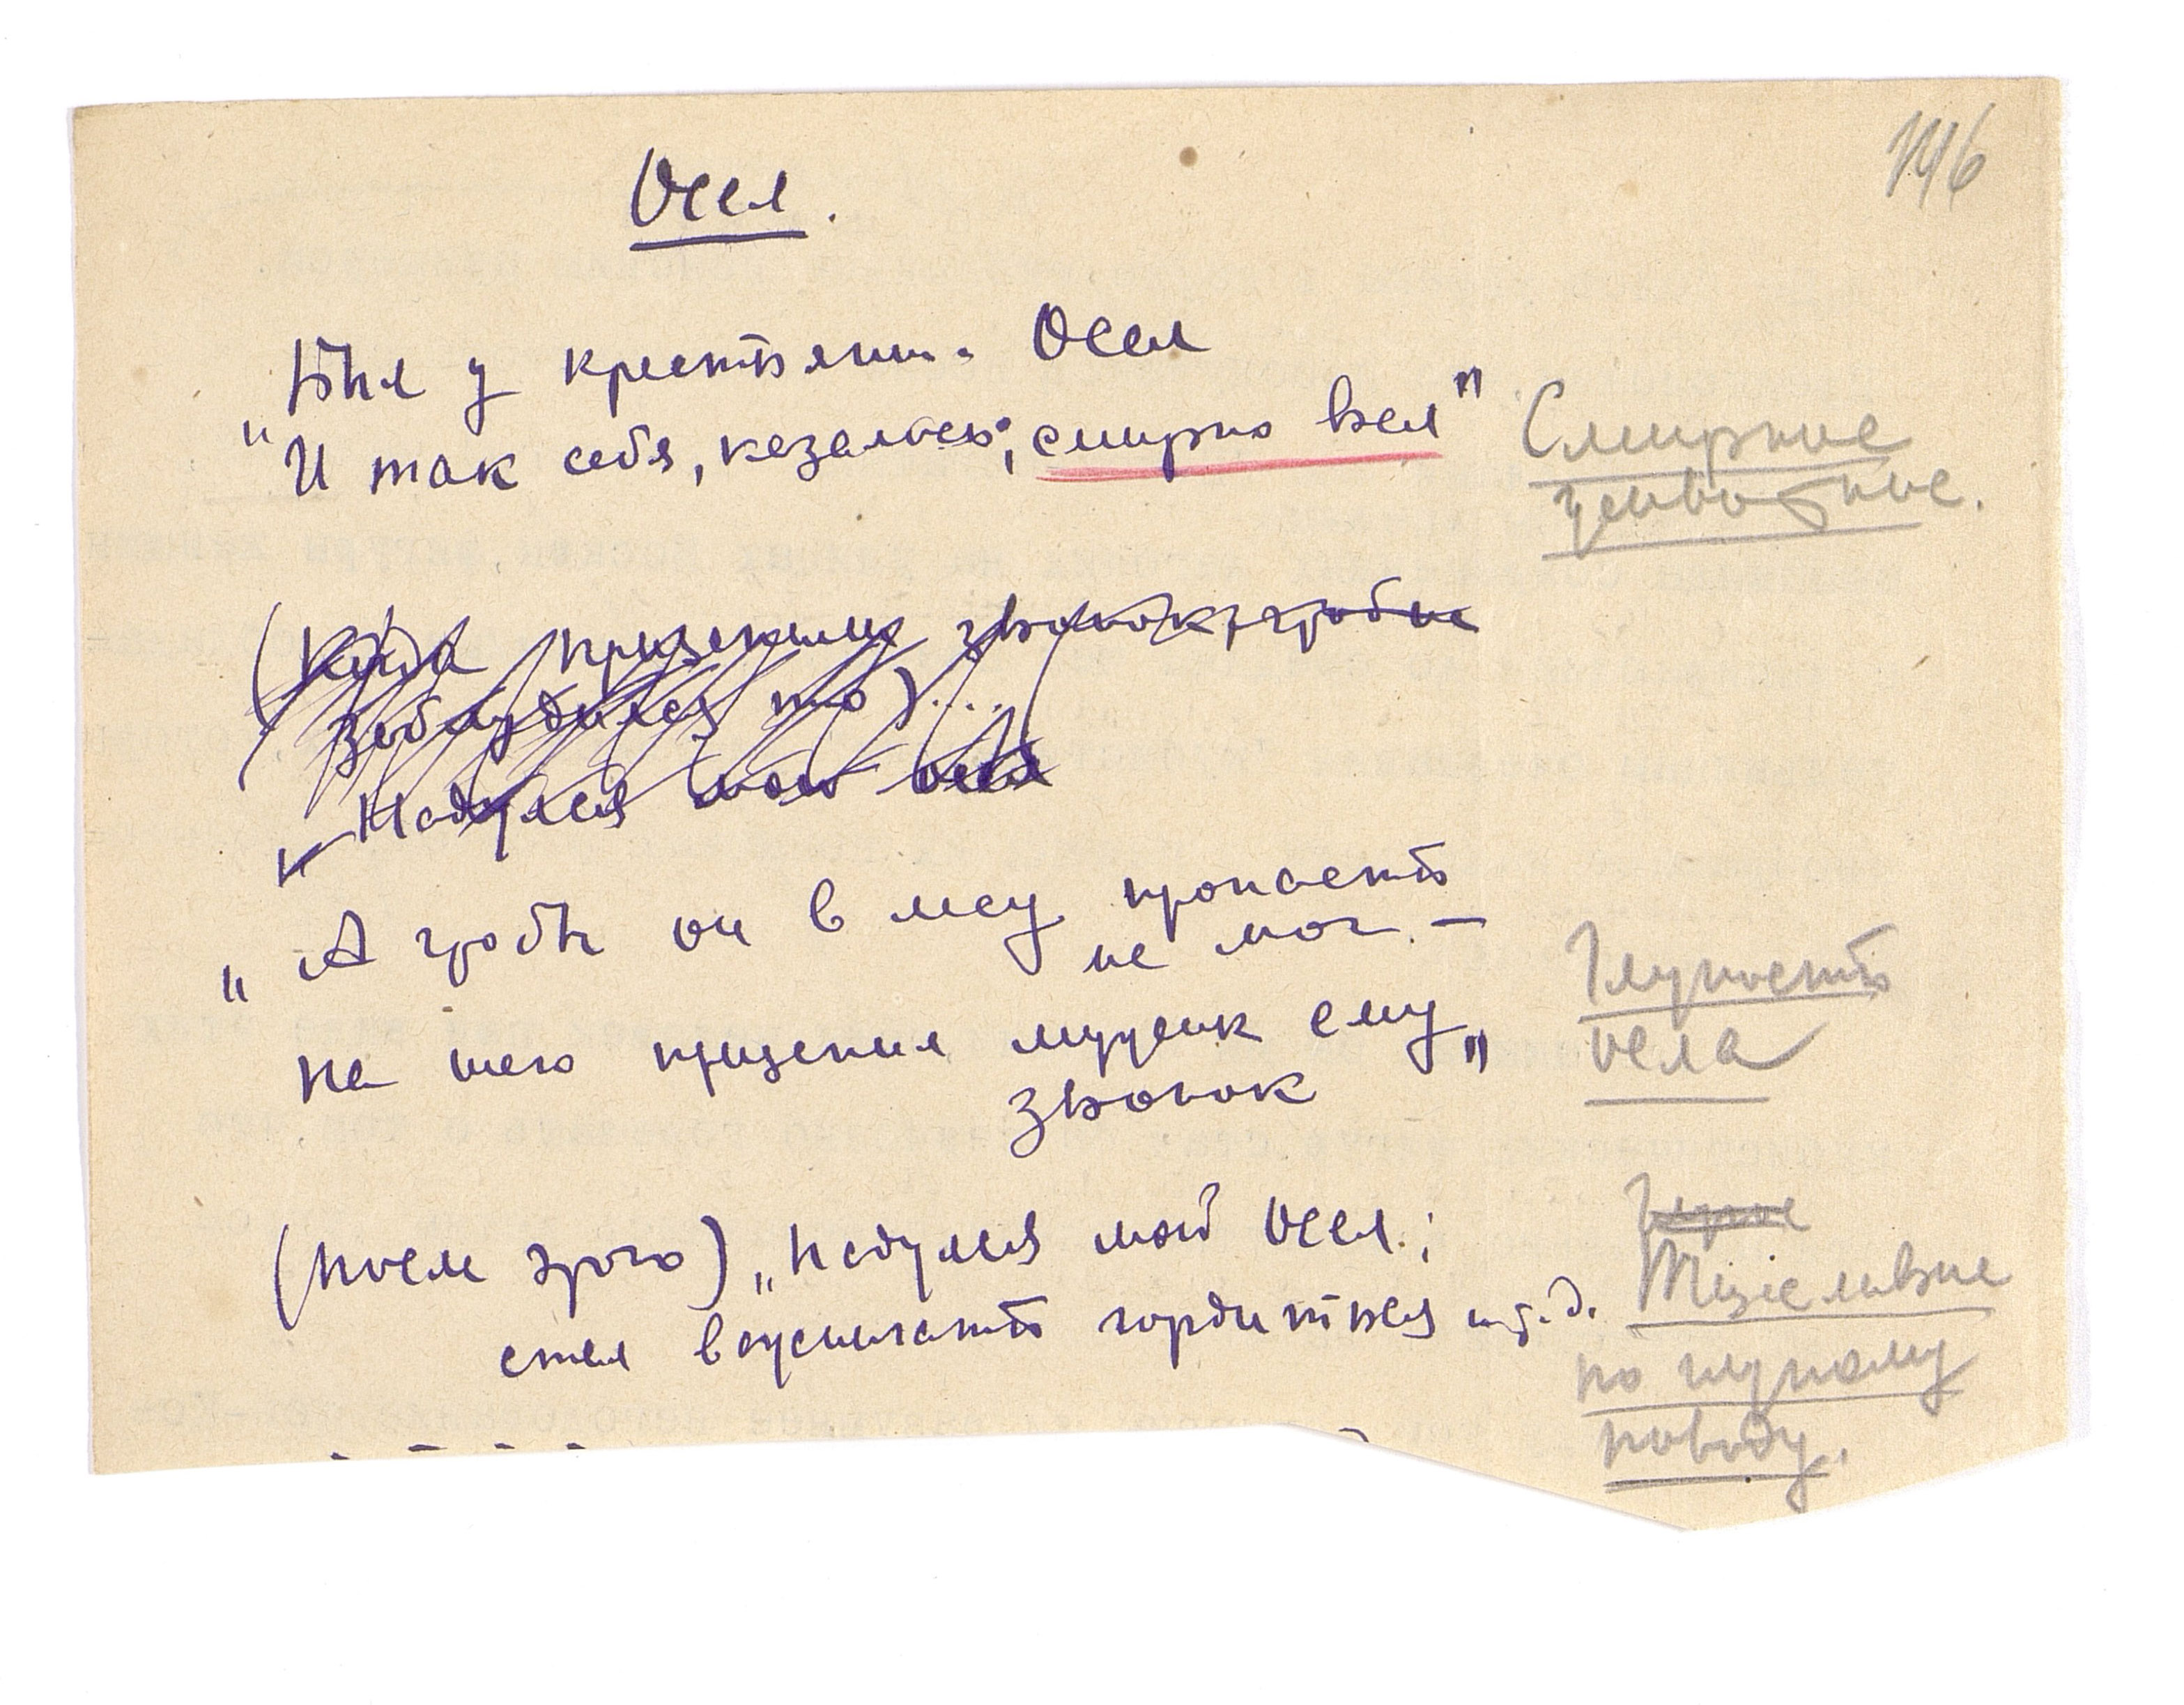 146
Осел.
„Был у крестьянина Осел
И так себя, казалось, смирно вел"
Смирное
животное.
(Когда прицепили звонок, чтобы не
заблудился то)....
Надулся мой осел
„А чтобы он в лесу пропасть
не мог. —
На шею прицепил мужик ему
звонок"
Глупость
осла
(после этого) „Надулся мой Осел.;
стал важничать гордиться и т.д.
Тщеславие
по глупому
поводу.